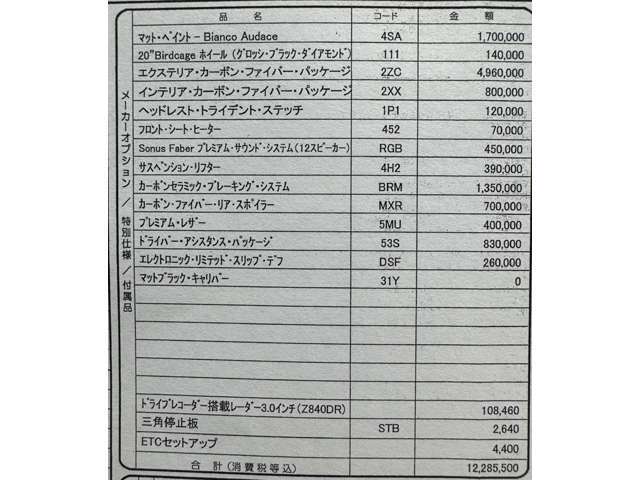 品 名 コード 金 額
マット・ペイント – Bianco Audace 4SA 1,700,000
20"Birdcage ホイール (グロッシ・ブラック・ダイアモンド) 111 140,000
エクステリア・カーボン・ファイバー・パッケージ 2ZC 4,960,000
インテリア・カーボン・ファイバー・パッケージ 2XX 800,000
ヘッドレスト・トライデント・ステッチ 1P1 120,000
フロント・シート・ヒーター 452 70,000
Sonus Faber プレミアム・サウンド・システム(12スピーカー) RGB 450,000
サスペンション・リフター 4H2 390,000
カーボンセラミック・ブレーキング・システム BRM 1,350,000
カーボン・ファイバー・リア・スポイラー MXR 700,000
プレミアム・レザー 5MU 400,000
ドライバー・アシスタンス・パッケージ 53S 830,000
エレクトロニック・リミテッド・スリップ・デフ DSF 260,000
マットブラック・キャリパー 31Y 0
メーカーオプション / 特別仕様 / 付属品
ドライブレコーダー搭載レーダー3.0インチ(Z840DR) 108,460
三角停止板 STB 2,640
ETCセットアップ 4,400
合 計 (消費税等込) 12,285,500